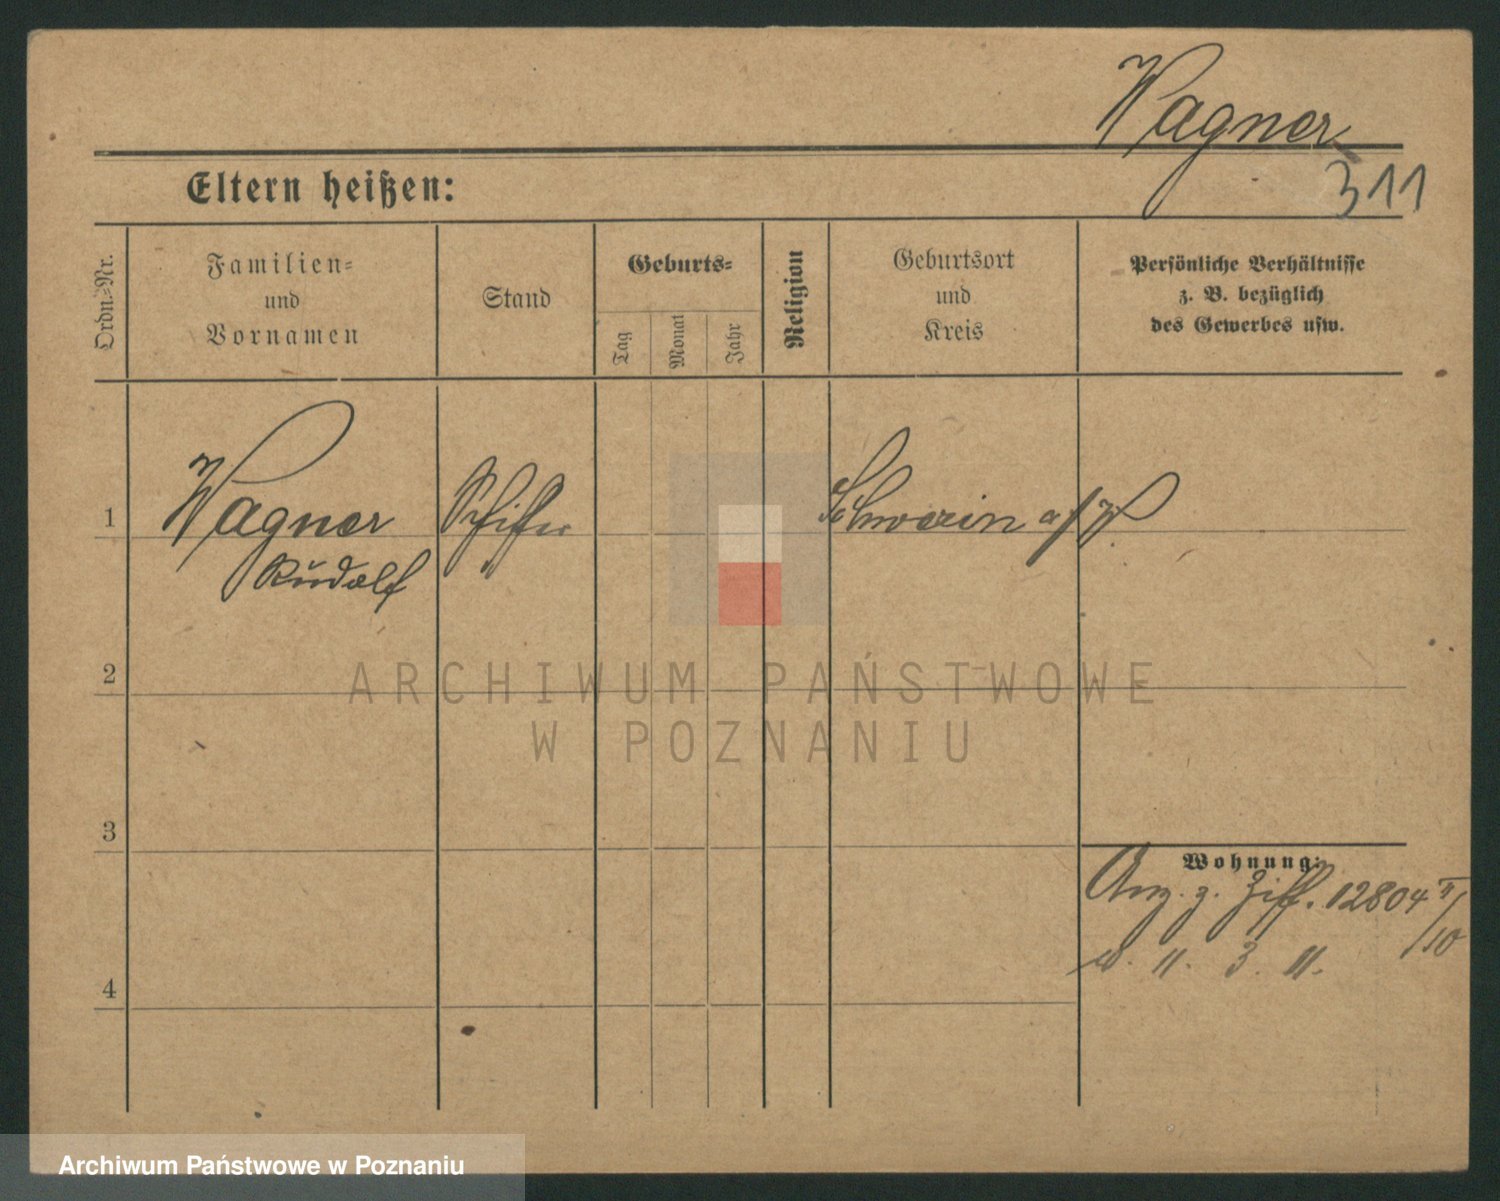 Wagner
311
Eltern heißen:
Ordn.-Nr.
Familien-
und
Vornamen
Stand
Geburts-
Tag
Monat
Jahr
Religion
Geburtsort
und
Kreis
Persönliche Verhältnisse
z. B. bezüglich
des Gewerbes usw.
1
Wagner
Rudolf
Schiffer
Schwerin a/W
2
ARCHIWUM PAŃSTWOWE
W POZNANIU
3
Wohnung:
Anz. z. Ziff. 12804 II/10
w. 11. 3. 11.
4
Archiwum Państwowe w Poznaniu